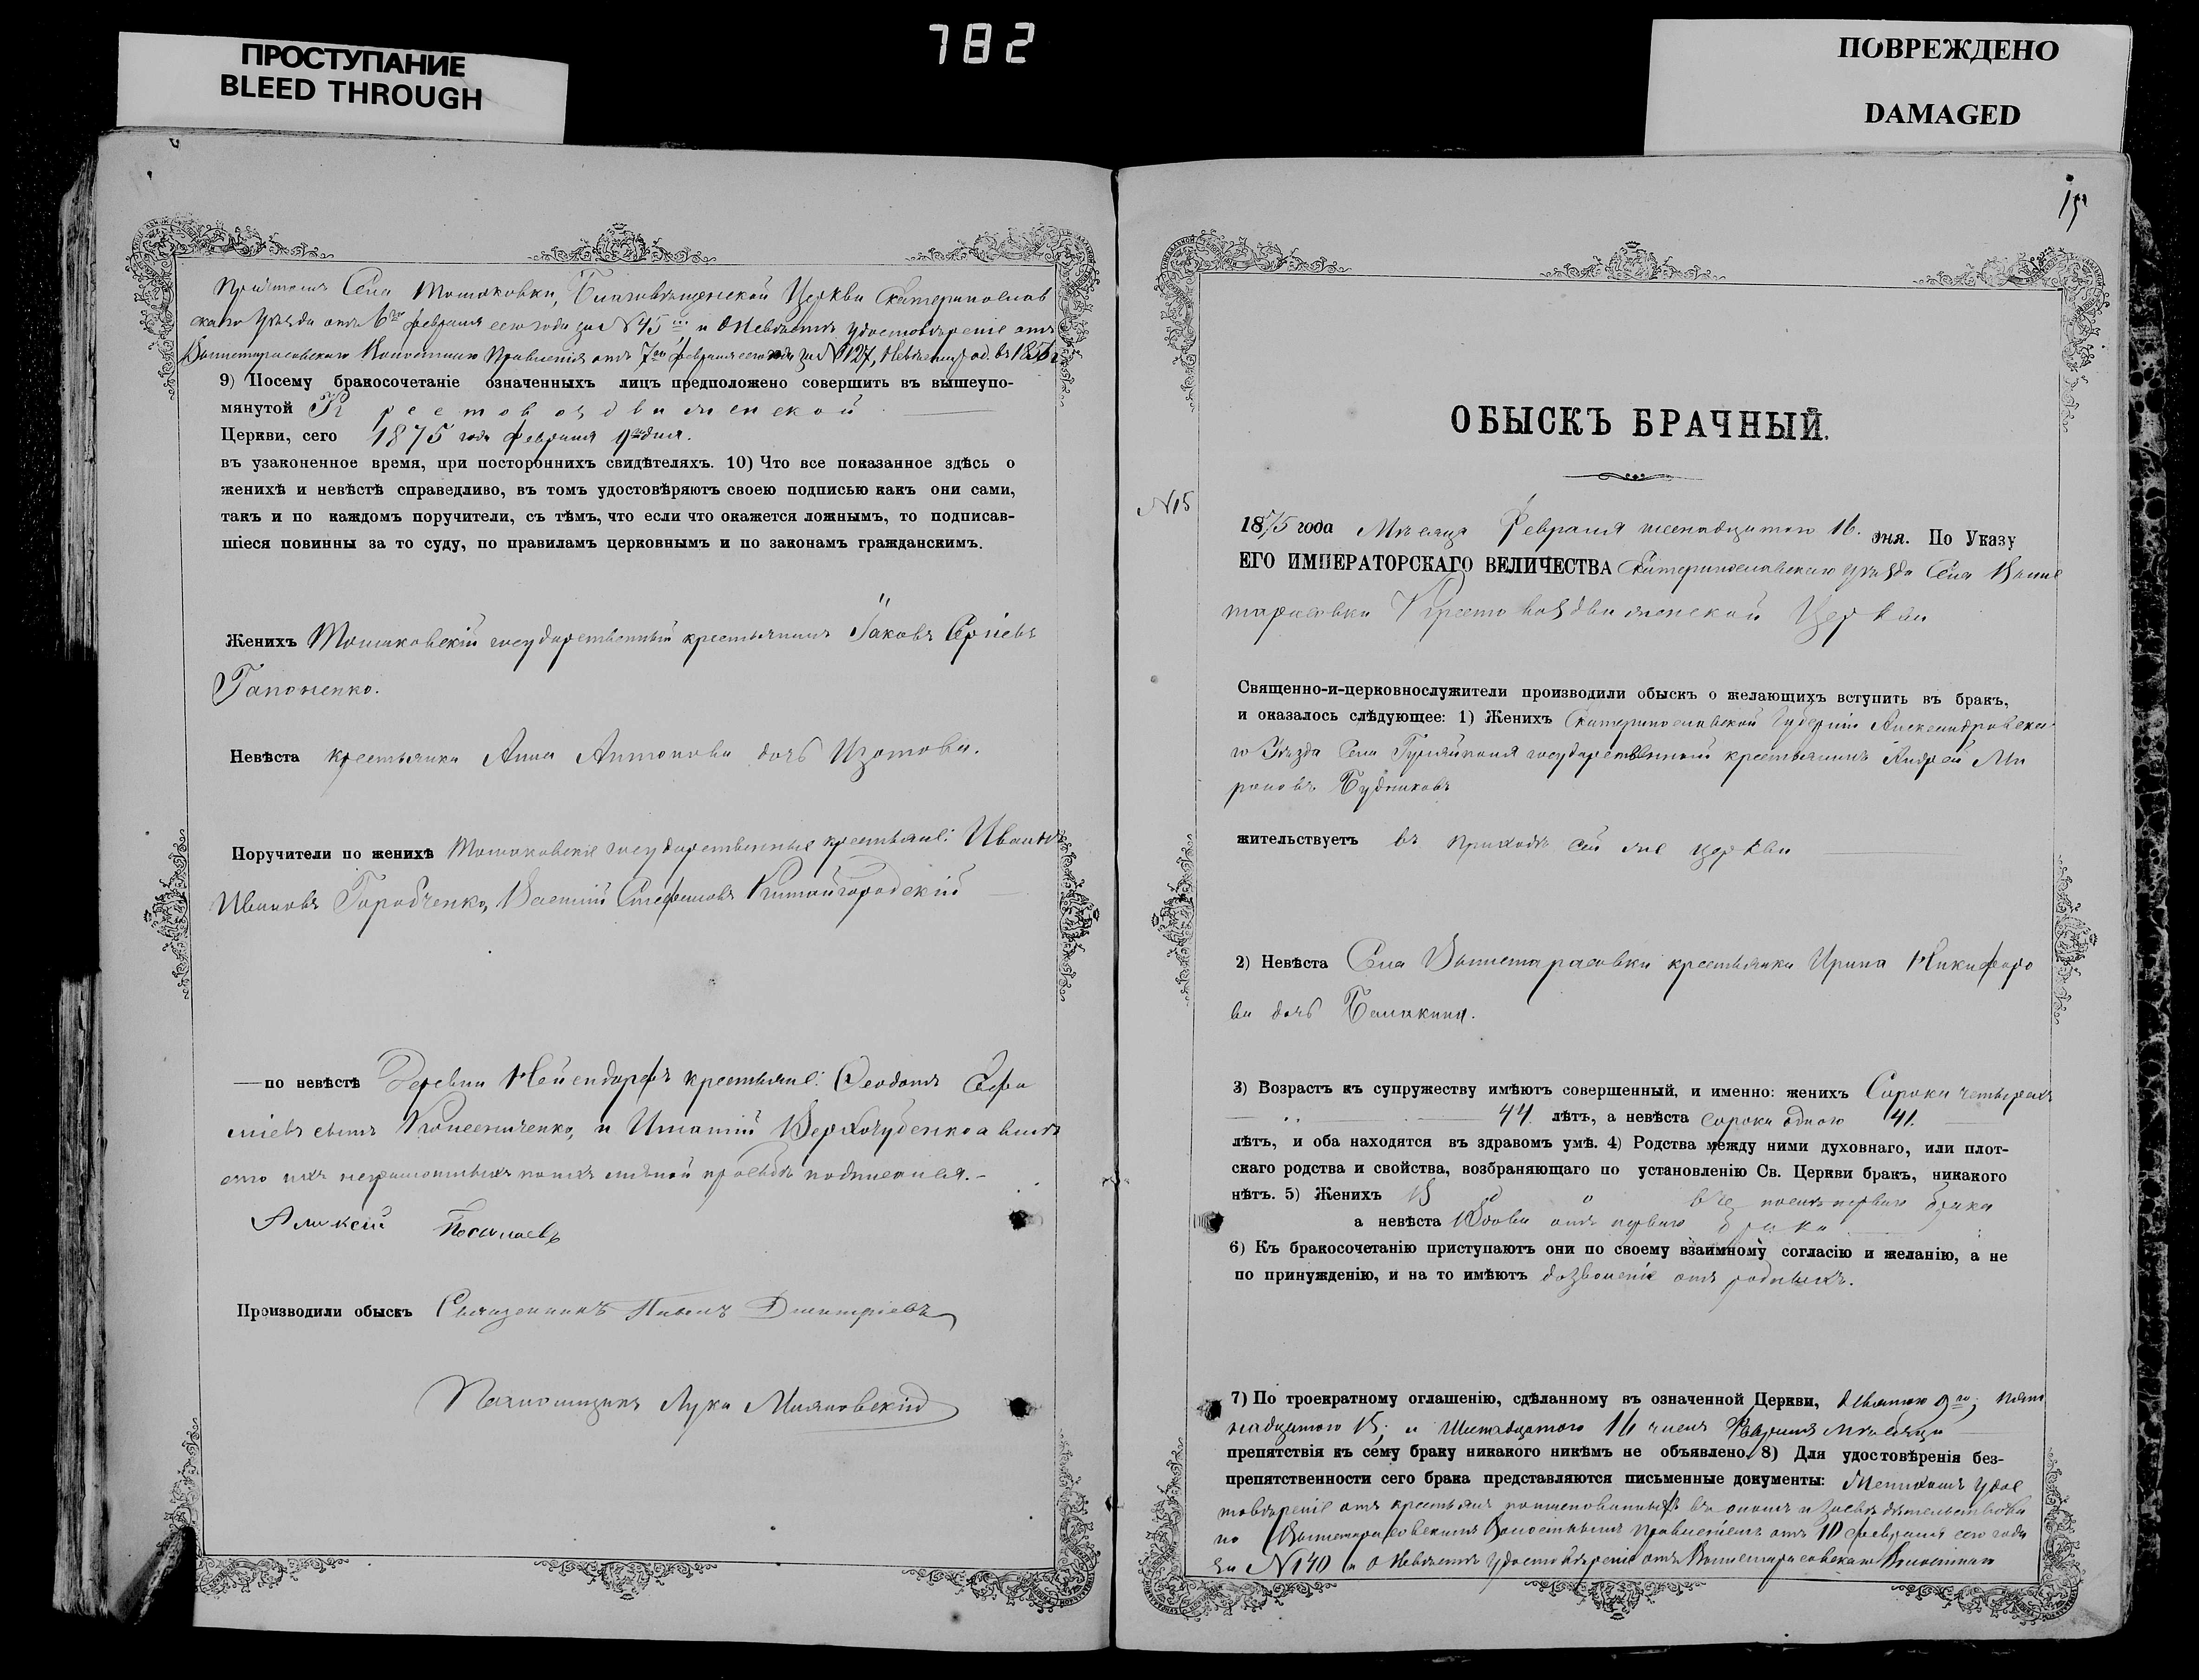 782
ПРОСТУПАНИЕ
BLEED THROUGH
ПОВРЕЖДЕНО
DAMAGED
Села Томаковки, Благовѣщенской Церкви Екатеринослав
скаго Уѣзда отъ 6го февраля сего года за № 45 и о Невѣстѣ удостовѣреніе отъ
Вышетарасовскаго Волостнаго Правленія отъ 7го февраля сего года за № 127, Невѣста род. въ 1856
9) Посему бракосочетаніе означенныхъ лицъ предположено совершить въ вышеупо-
мянутой Крестовоздвиженской
Церкви, сего 1875 года февраля 9го дня.
въ узаконенное время, при постороннихъ свидѣтеляхъ. 10) Что все показанное здѣсь о
женихѣ и невѣстѣ справедливо, въ томъ удостовѣряютъ своею подписью какъ они сами,
такъ и по каждомъ поручители, съ тѣмъ, что если что окажется ложнымъ, то подписав-
шіеся повинны за то суду, по правиламъ церковнымъ и по законамъ гражданскимъ.
Женихъ Томаковскій государственный крестьянинъ Іаковъ Сргіевъ
Гапоненко.
Невѣста крестьянка Анна Антонова дочь Изотова.
Поручители по женихѣ Томаковскіе государственные крестьяне: Иванъ
Ивановъ Городченко, Василій Стефановъ Китайгородскій
—по невѣстѣ Деревни Нейендорфъ крестьяне: Ѳеодотъ
сынъ и Игнатій а вмѣ
сто ихъ неграмотныхъ по ихъ личной просьбѣ подписался.-
Алексій
Производили обыскъ Священникъ Павелъ Дмитріевъ
Псаломщикъ Лука
15
ОБЫСКЪ БРАЧНЫЙ.
N15
1875 года Мѣсяца Февраля шестнадцатого 16. дня. По Указу
ЕГО ИМПЕРАТОРСКАГО ВЕЛИЧЕСТВА Екатеринославскаго уѣзда Села Выше
тарасовки Крестовоздвиженской Церкви
Священно-и-церковнослужители производили обыскъ о желающихъ вступить въ бракъ,
и оказалось слѣдующее: 1) Женихъ Екатеринославской Губерніи Александровска
го Уѣзда Села Гуляйполя государственный крестьянинъ Андрей Ми
роновъ Будниковъ
жительствуетъ въ приходѣ сей же церкви
2) Невѣста Села Вышетарасовки крестьянка Ирина Никифоро
ва дочь Балакина.
3) Возрастъ къ супружеству имѣютъ совершенный, и именно: женихъ Сорока четырехъ
44 лѣтъ, а невѣста сорока одного 41.
лѣтъ, и оба находятся въ здравомъ умѣ. 4) Родства между ними духовнаго, или плот-
скаго родства и свойства, возбраняющаго по установленію Св. Церкви бракъ, никакого
нѣтъ. 5) Женихъ Вдовецъ послѣ перваго брака
а невѣста Вдова отъ перваго брака
6) Къ бракосочетанію приступаютъ они по своему взаимному согласію и желанію, а не
по принужденію, и на то имѣютъ дозволеніе отъ родныхъ.
7) По троекратному оглашенію, сдѣланному въ означенной Церкви, девятого 9го; пят
надцатого 15; и Шестнадцатого 16 числъ Февраля мѣсяца
препятствія къ сему браку никакого никѣмъ не объявлено. 8) Для удостовѣренія без-
препятственности сего брака представляются письменные документы: Женихомъ удос
товѣреніе отъ крестьянъ поименованныхъ въ ономъ и засвидѣтельствова
но Вышетарасовскимъ Волостнымъ Правленіемъ отъ 10 февраля сего года
за N140 и о Невѣстѣ удостовѣреніе отъ Вышетарасовскаго Волостнаго